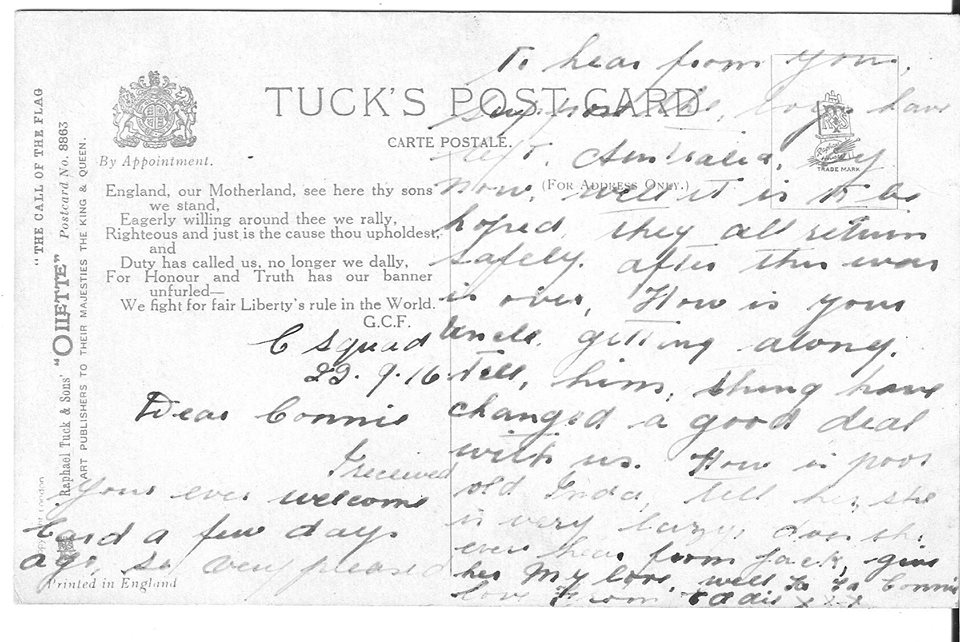 "THE CALL OF THE FLAG
Raphael Tuck & Sons' "OILETTE" Postcard No. 8863
ART PUBLISHERS TO THEIR MAJESTIES THE KING & QUEEN.
By Appointment.
TUCK'S POST CARD
CARTE POSTALE.
(For Address Only.)
TRADE MARK
England, our Motherland, see here thy sons
we stand,
Eagerly willing around thee we rally,
Righteous and just is the cause thou upholdest,
and
Duty has called us, no longer we dally,
For Honour and Truth has our banner
unfurled—
We fight for fair Liberty's rule in the World.
G.C.F.
C Squad
22.9.16
Dear Connie
I received
your ever welcome
Card a few days
ago, so very pleased
Printed in England
To hear from you,
suppose the, boys have
left, Australia, by
now, well it is to be
hoped, they all return
safely. after this war
is over, How is your
Uncle getting along.
Tell, him, thing have
changed a good deal
with us. How is poor
old tell her, she
is very lazy, does she
ever hear from Jack, give
her my love, well Ta Ta Connie
love from x x x